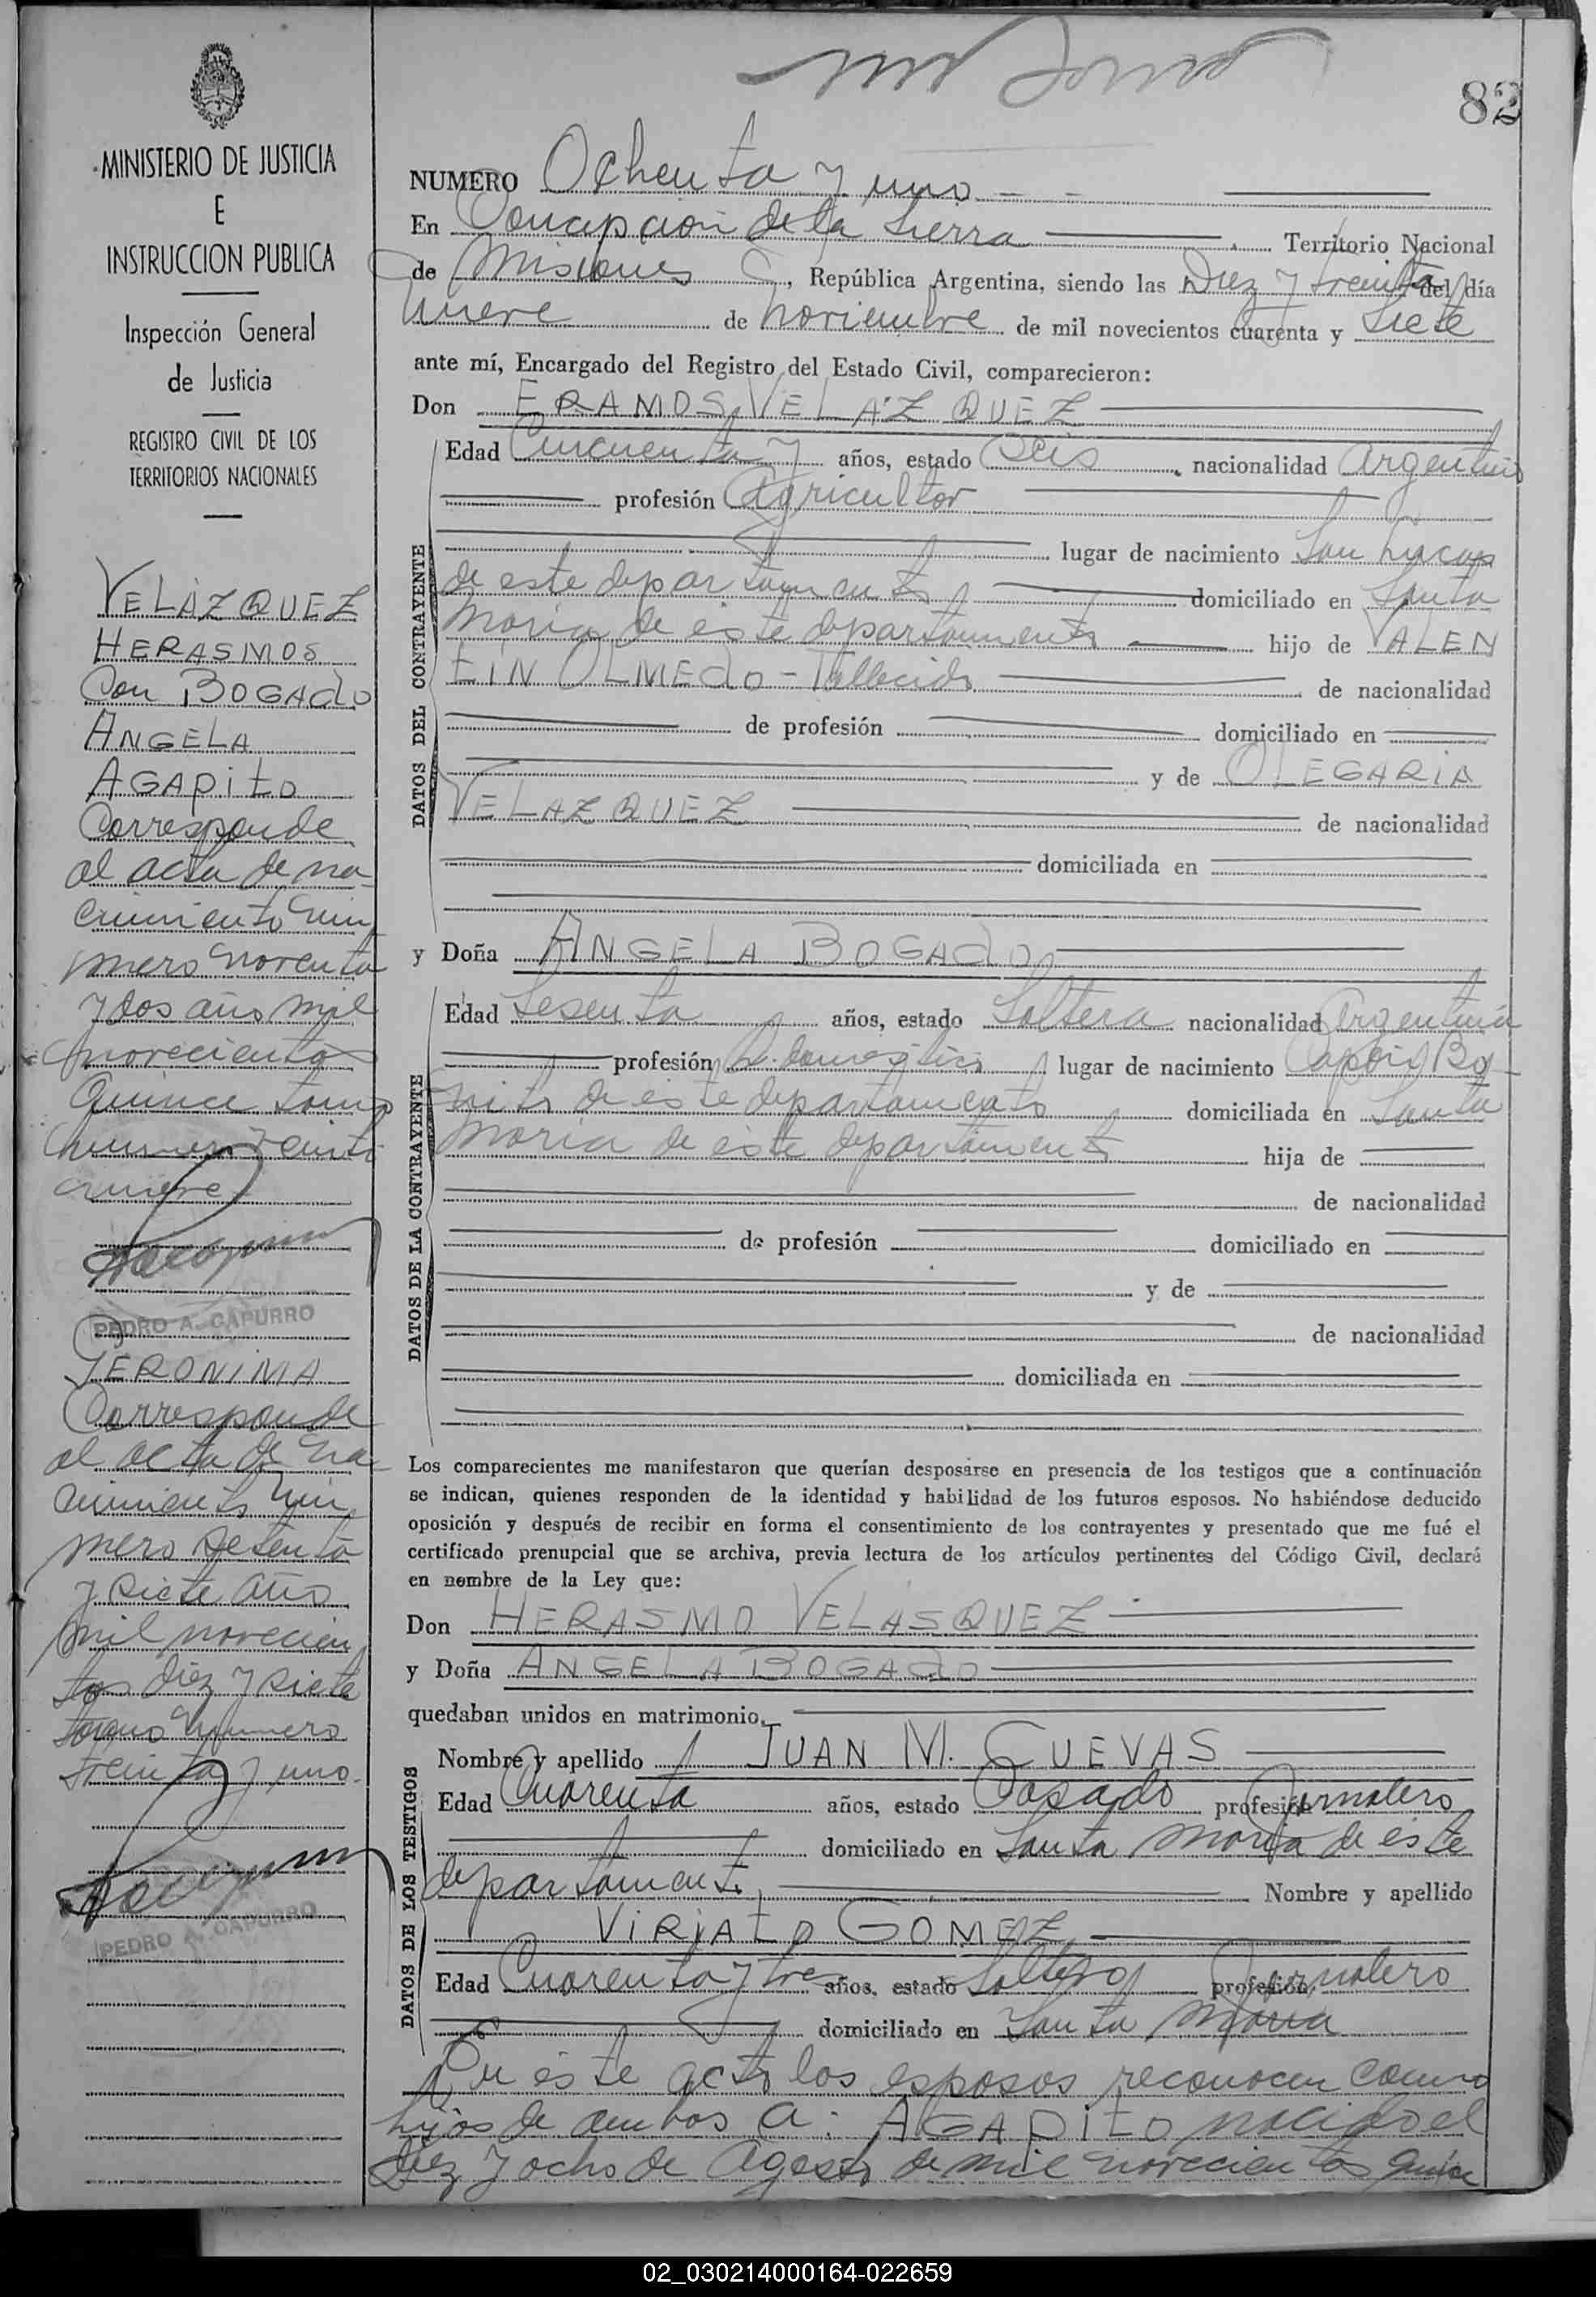 82
MINISTERIO DE JUSTICIA
E
INSTRUCCION PUBLICA
Inspección General
de Justicia
REGISTRO CIVIL DE LOS
TERRITORIOS NACIONALES
VELÁZQUEZ
HERASMOS
Con BOGADO
ANGELA
AGAPITO
Corresponde
al acta de na-
cimiento nú
mero noventa
y dos año mil
novecientos
Quince tomo
número veinti
nueve
PEDRO A. CAPURRO
JERONIMA
Corresponde
al acta de na-
cimiento nú
mero setenta
y siete año
mil novecien
tos diez y siete
tomo número
treinta y uno.
PEDRO A. CAPURRO
NUMERO Ochenta y uno
En Concepcion de la Sierra Territorio Nacional
de Misiones, República Argentina, siendo las Diez y treinta del día
nueve de noviembre de mil novecientos cuarenta y siete
ante mí, Encargado del Registro del Estado Civil, comparecieron:
Don ERAMOS VELÁZQUEZ
DATOS DEL CONTRAYENTE
Edad Cincuenta y años, estado seis, nacionalidad argentino
profesión Agricultor
lugar de nacimiento San Lucas
de este departamento domiciliado en Santa
Maria de este departamento hijo de VALEN
TIN OLMEDO - Fallecido de nacionalidad
de profesión domiciliado en
y de OLEGARIA
VELAZQUEZ de nacionalidad
domiciliada en
y Doña ANGELA BOGADO
DATOS DE LA CONTRAYENTE
Edad Sesenta años, estado Soltera nacionalidad Argentina
profesión domestica lugar de nacimiento Capon Bo-
nito de este departamento domiciliada en Santa
Maria de este departamento hija de
de nacionalidad
de profesión domiciliado en
y de
de nacionalidad
domiciliada en
Los comparecientes me manifestaron que querían desposarse en presencia de los testigos que a continuación
se indican, quienes responden de la identidad y habilidad de los futuros esposos. No habiéndose deducido
oposición y después de recibir en forma el consentimiento de los contrayentes y presentado que me fué el
certificado prenupcial que se archiva, previa lectura de los artículos pertinentes del Código Civil, declaré
en nombre de la Ley que:
Don HERASMO VELASQUEZ
y Doña ANGELA BOGADO
quedaban unidos en matrimonio.
DATOS DE LOS TESTIGOS
Nombre y apellido JUAN M. CUEVAS
Edad Cuarenta años, estado Casado profesión Jornalero
domiciliado en Santa Maria de este
departamento Nombre y apellido
VIRIATO GOMEZ
Edad Cuarenta y tres años, estado Soltero profesión Jornalero
domiciliado en Santa Maria
En este acto los esposos reconocen como
hijos de ambos a: AGAPITO nacido el
diez y ocho de Agosto de mil novecientos quince
02_030214000164-022659